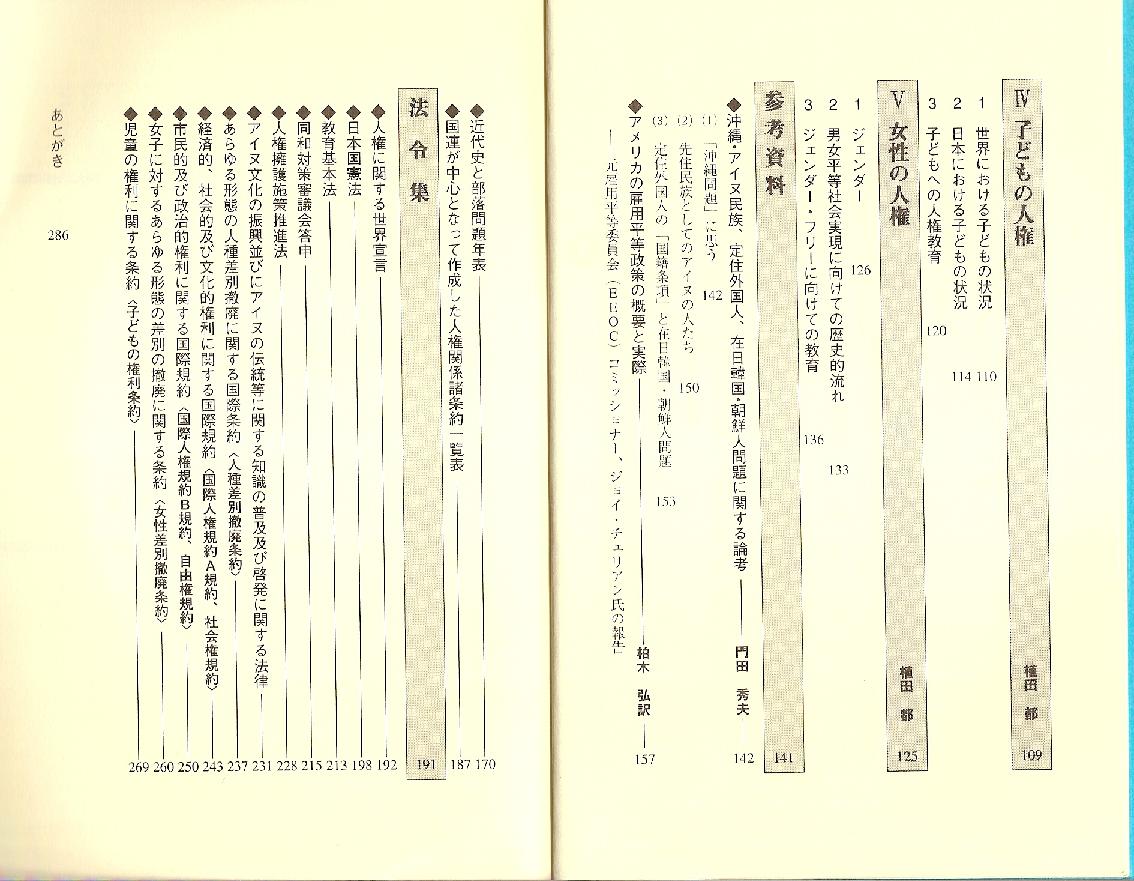 Ⅳ 子どもの人権 植田 都 109
1 世界における子どもの状況 110
2 日本における子どもの状況 114
3 子どもへの人権教育 120
Ⅴ 女性の人権 植田 都 125
1 ジェンダー 126
2 男女平等社会実現に向けての歴史的流れ 133
3 ジェンダー・フリーに向けての教育 136
参考資料 141
◆沖縄・アイヌ民族、定住外国人、在日韓国・朝鮮人問題に関する論考 門田 秀夫 142
(1) 「沖縄問題」に思う 142
(2) 先住民族としてのアイヌの人たち 150
(3) 定住外国人の「国籍条項」と在日韓国・朝鮮人問題 153
◆アメリカの雇用平等政策の概要と実際 柏木 弘訳 157
―元雇用平等委員会(EEOC)コミッショナー、ジョイ・チェリアン氏の報告
◆近代史と部落問題年表 170
◆国連が中心となって作成した人権関係諸条約一覧表 187
法令集 191
◆人権に関する世界宣言 192
◆日本国憲法 198
◆教育基本法 213
◆同和対策審議会答申 215
◆人権擁護施策推進法 228
◆アイヌ文化の振興並びにアイヌの伝統等に関する知識の普及及び啓発に関する法律 231
◆あらゆる形態の人種差別撤廃に関する国際条約〈人種差別撤廃条約〉 237
◆経済的、社会的及び文化的権利に関する国際規約〈国際人権規約A規約、社会権規約〉 243
◆市民的及び政治的権利に関する国際規約〈国際人権規約B規約、自由権規約〉 250
◆女子に対するあらゆる形態の差別の撤廃に関する条約〈女性差別撤廃条約〉 260
◆児童の権利に関する条約〈子どもの権利条約〉 269
あとがき 286